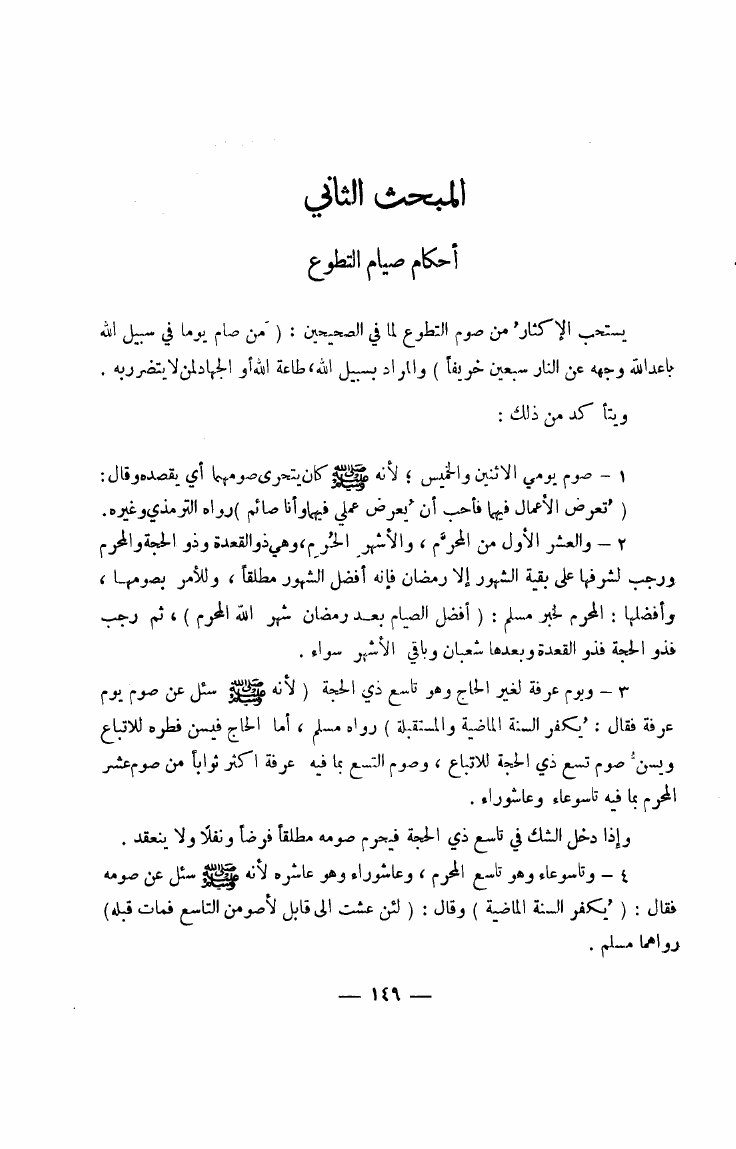 المبحث الثاني
أحكام صيام التطوع
يستحب الإكثارُ من صوم التطوع لما في الصحيحين : ( مَن صام يوما في سبيل الله
باعدالله وجهه عن النار سبعين خريفاً ) والمراد بسبيل الله، طاعة الله أو الجهادلمن لا يتضرر به .
ويتأكد من ذلك :
١ – صوم يومي الاثنين والخميس ؛ لأنه ﷺ كان يتحرى صومهما أي يقصده وقال :
( تُعرض الأعمال فيها فأحب أن يُعرض عملي فيها وأنا صائم ) رواه الترمذي وغيره .
٢ – والعشر الأول من المحرَّم ، والأشهرِ الحُرُمِ، وهي ذوالقعدة وذو الحجة والمحرم
ورجب لشرفها على بقية الشهور إلا رمضان فإنه أفضل الشهور مطلقاً ، وللأمر بصومها ،
وأفضلها : المحرم لخبر مسلم : ( أفضل الصيام بعد رمضان شهر الله المحرم ) ، ثم رجب
فذو الحجة فذو القعدة وبعدها شعبان وباقي الأشهر سواء .
٣ – ويوم عرفة لغير الحاج وهو تاسع ذي الحجة ( لأنه ﷺ سئل عن صوم يوم
عرفة فقال : ُيكفر السنة الماضية والمستقبلة ) رواه مسلم ، أما الحاج فيسن فطره للاتباع
ويسنُ صوم تسع ذي الحجة للاتباع ، وصوم التسع بما فيه عرفة اكثر ثواباً من صوم عشر
المحرم بما فيه تاسوعاء وعاشوراء .
وإذا دخل الشك في تاسع ذي الحجة فيحرم صومه مطلقاً فرضاً ونفلًا ولا ينعقد .
٤ – وتاسوعاء وهو تاسع المحرم ، وعاشوراء وهو عاشره لأنه ﷺ سئل عن صومه
فقال : ( ُيكفر السنة الماضية ) وقال : ( لئن عشت الى قابل لأصومن التاسع فمات قبله )
رواهما مسلم .
— ١٤٩ —